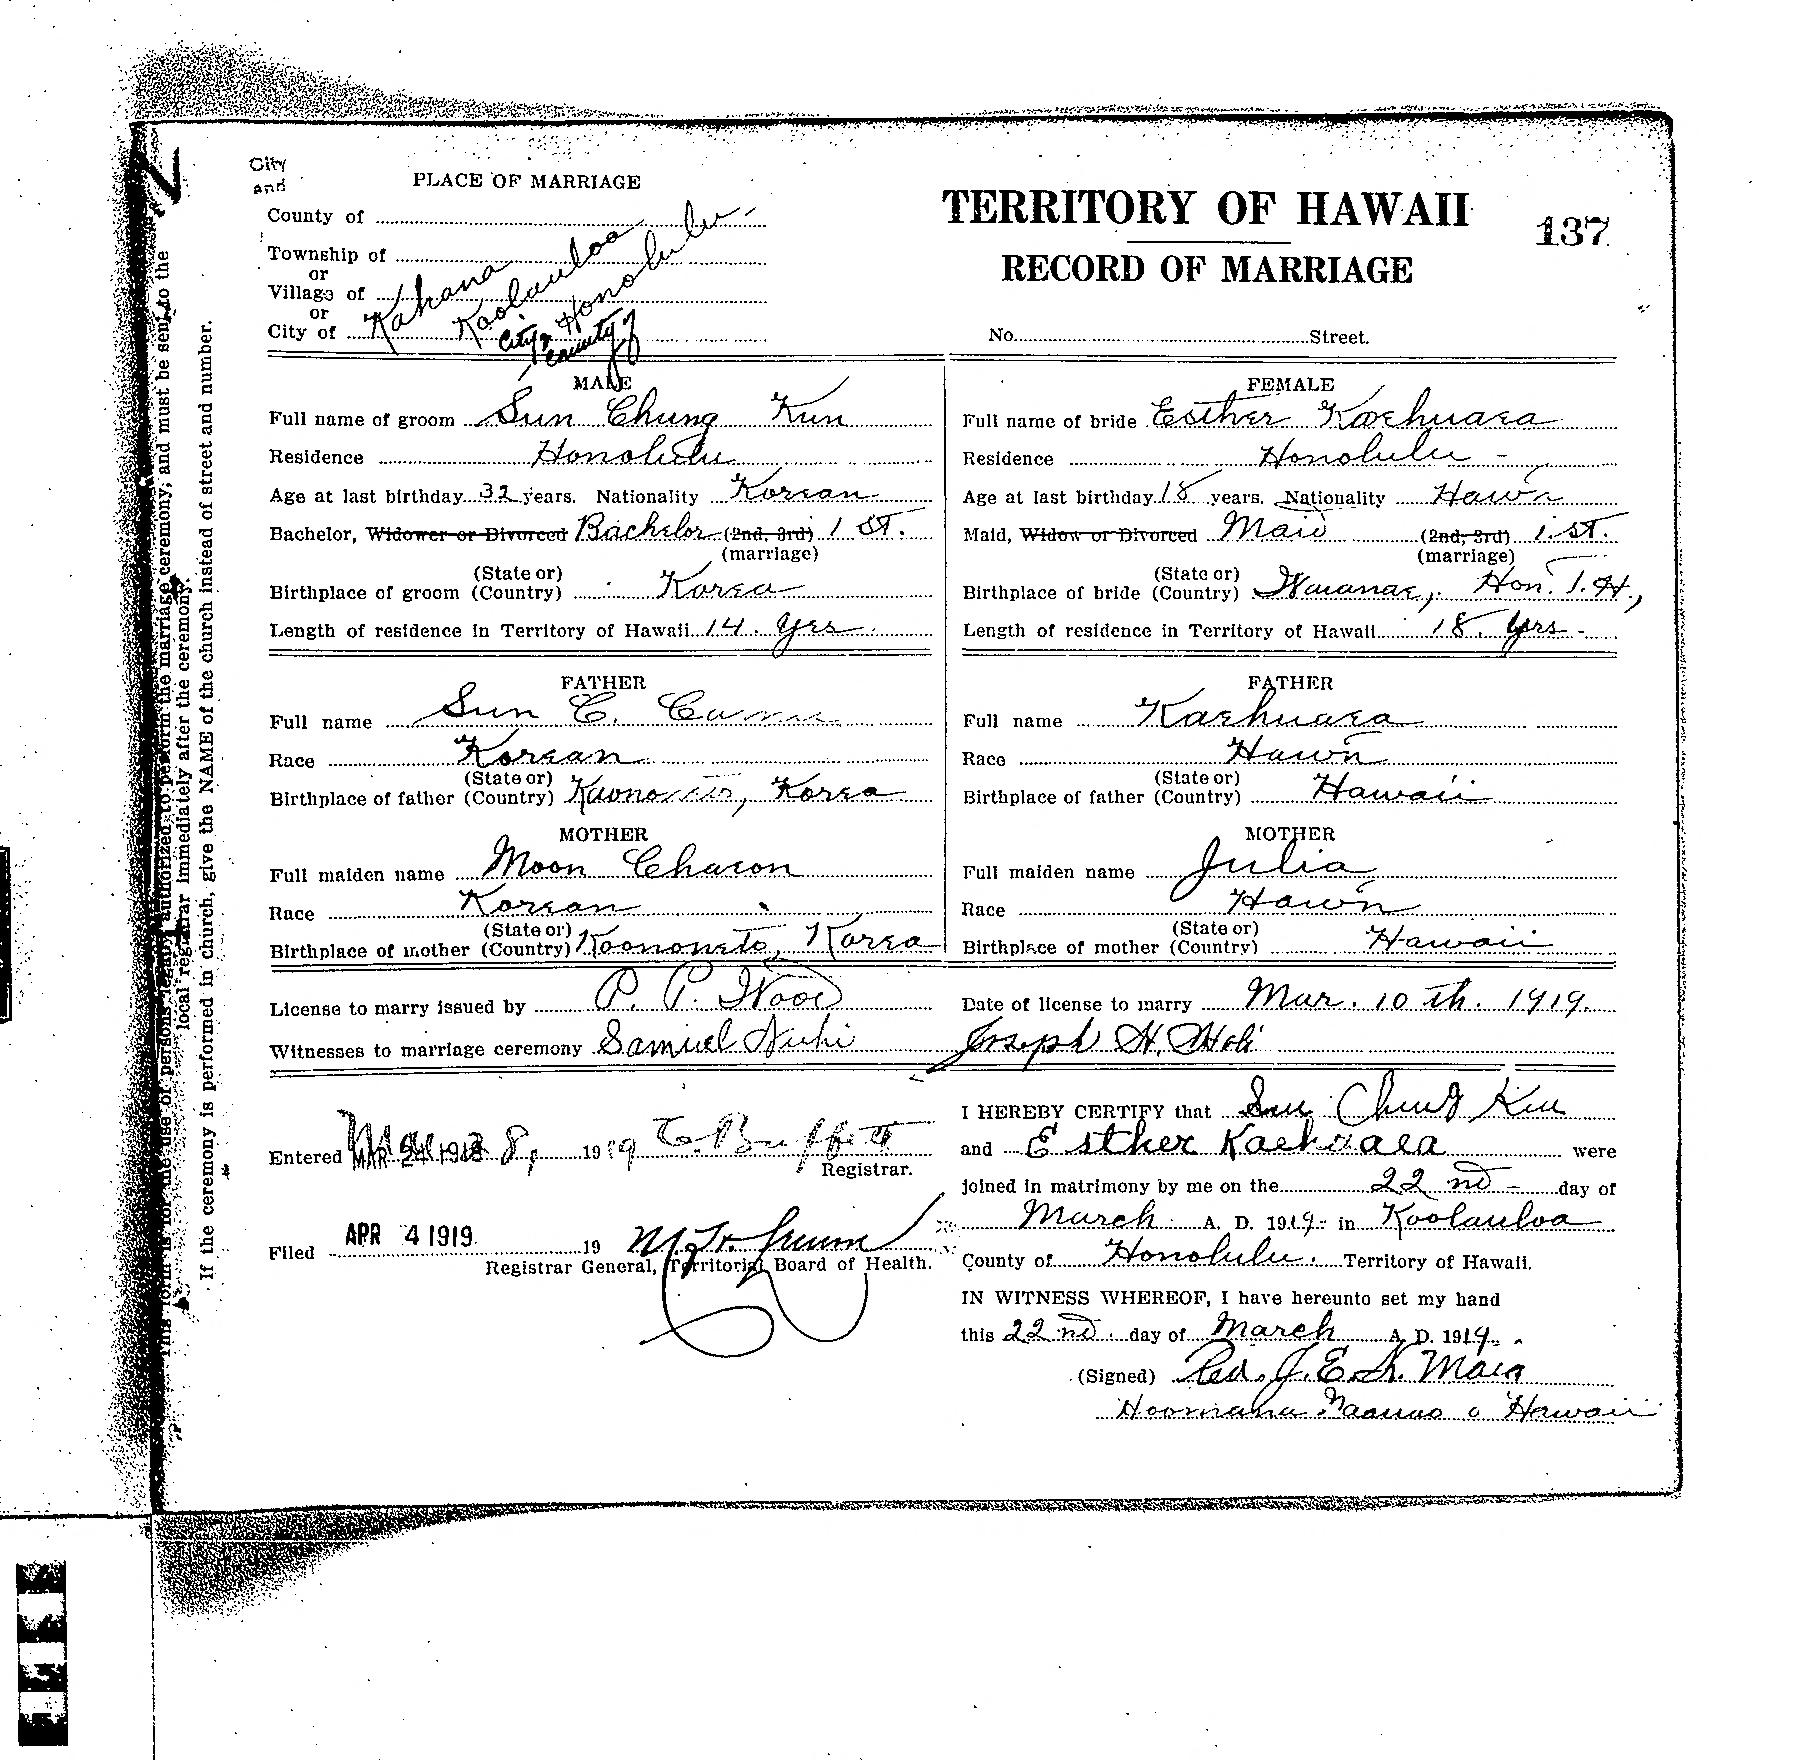 City
and
PLACE OF MARRIAGE
County of
Township of
or
Village of
or
City of
Kahana
Koolauloa
City & County of
Honolulu
TERRITORY OF HAWAII
137
RECORD OF MARRIAGE
No. Street.
MALE
Full name of groom Sun Chung Kun
Residence Honolulu
Age at last birthday 32 years. Nationality Korean
Bachelor, Widower or Divorced Bachelor (2nd, 3rd) 1 st.
(marriage)
(State or)
Birthplace of groom (Country) Korea
Length of residence in Territory of Hawaii 14. Yrs.
FEMALE
Full name of bride Esther Kaehuaea
Residence Honolulu -
Age at last birthday 18 years. Nationality Hawn
Maid, Widow or Divorced Maid (2nd, 3rd) 1.st.
(marriage)
(State or)
Birthplace of bride (Country) Waianae, Hon. T.H.,
Length of residence in Territory of Hawaii 18. Yrs -
FATHER
Full name Sun C.
Race Korean
(State or)
Birthplace of father (Country) Korea
MOTHER
Full maiden name Moon Charon
Race Korean
(State or)
Birthplace of mother (Country) Koononsto, Korea
FATHER
Full name Kaehuaea
Race Hawn
(State or)
Birthplace of father (Country) Hawaii
MOTHER
Full maiden name Julia
Race Hawn
(State or)
Birthplace of mother (Country) Hawaii
License to marry issued by P. P. Wood
Date of license to marry Mar. 10 th. 1919.
Witnesses to marriage ceremony Samuel Nuhi Joseph H.
Entered 8, 1919 C. Buffett
Registrar.
Filed APR 4 1919 19
Registrar General, Territorial Board of Health.
I HEREBY CERTIFY that Sun Chung Kun
and Esther Kaehuaea were
joined in matrimony by me on the 22 nd - day of
March A. D. 1919 - in Koolauloa
County of Honolulu. Territory of Hawaii.
IN WITNESS WHEREOF, I have hereunto set my hand
this 22 nd. day of March A. D. 1919.
(Signed) J. E. K. Maia
Hoomana Naauao o Hawaii
This form is for the use of persons legally authorized to perform the marriage ceremony; and must be sent to the
local registrar immediately after the ceremony.
If the ceremony is performed in church, give the NAME of the church instead of street and number.